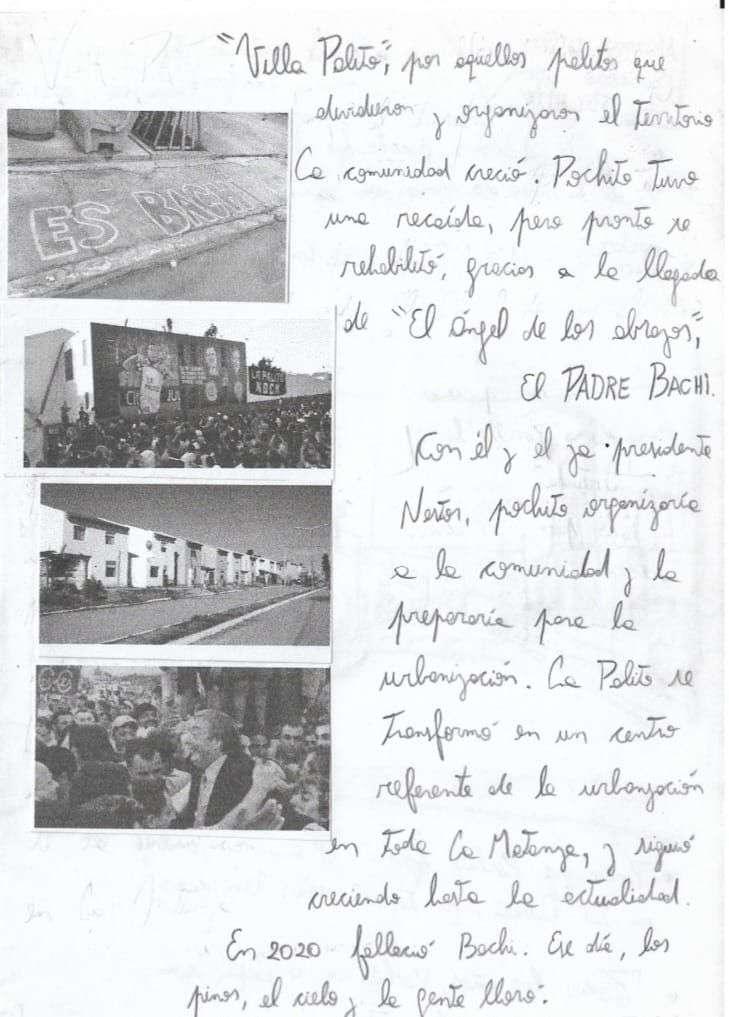 "Villa Palito", por aquellos palitos que
dividieron y organizaron el Territorio
La comunidad creció. Pochito Tuvo
una recaída, pero pronto se
rehabilitó, gracias a la llegada
de "El Ángel de los abrazos",
El PADRE BACHI.
Con él y el ya presidente
Nestor, pochito organizaría
a la comunidad y la
prepararía para la
urbanización. La Palito se
Transformó en un centro
referente de la urbanización
en Toda La Matanza, y siguió
creciendo hasta la actualidad.
En 2020 falleció Bachi. Ese día, los
pinos, el cielo y la gente lloró.
ES BACHI